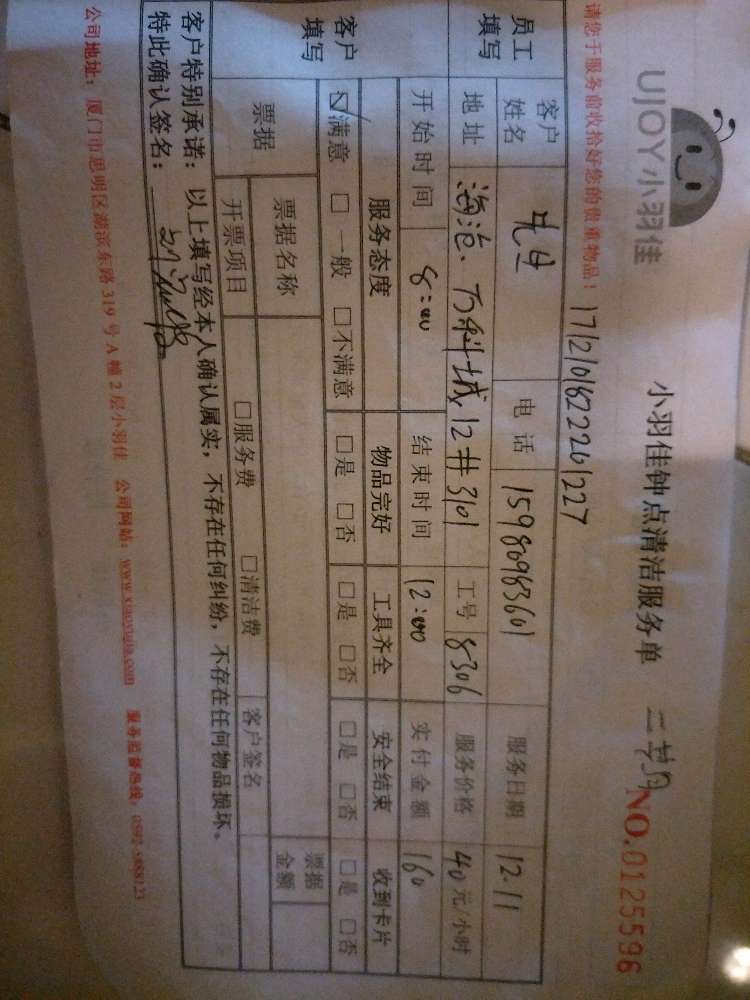 UJOY小羽佳
小羽佳钟点清洁服务单
NO.0125596
请您于服务前收拾好您的贵重物品!
1712101822261227
员工填写 客户姓名 先生 电话 15980983601 服务日期 12.11
地址 海沧、万科城12井3101 工号 8306 服务价格 40元/小时
开始时间 8:00 结束时间 12:00 实付金额 160
客户填写 服务态度 物品完好 工具齐全 安全结束 收到卡片
☑满意 □一般 □不满意 □是 □否 □是 □否 □是 □否 □是 □否
票据 票据名称 票据金额
开票项目 □服务费 □清洁费 客户签名
客户特别承诺:以上填写经本人确认属实,不存在任何纠纷,不存在任何物品损坏。
特此确认签名:
公司地址:厦门市思明区湖滨东路319号A幢2层小羽佳 公司网站:www.xiaoyujia.com 服务监督热线:0592-5888123